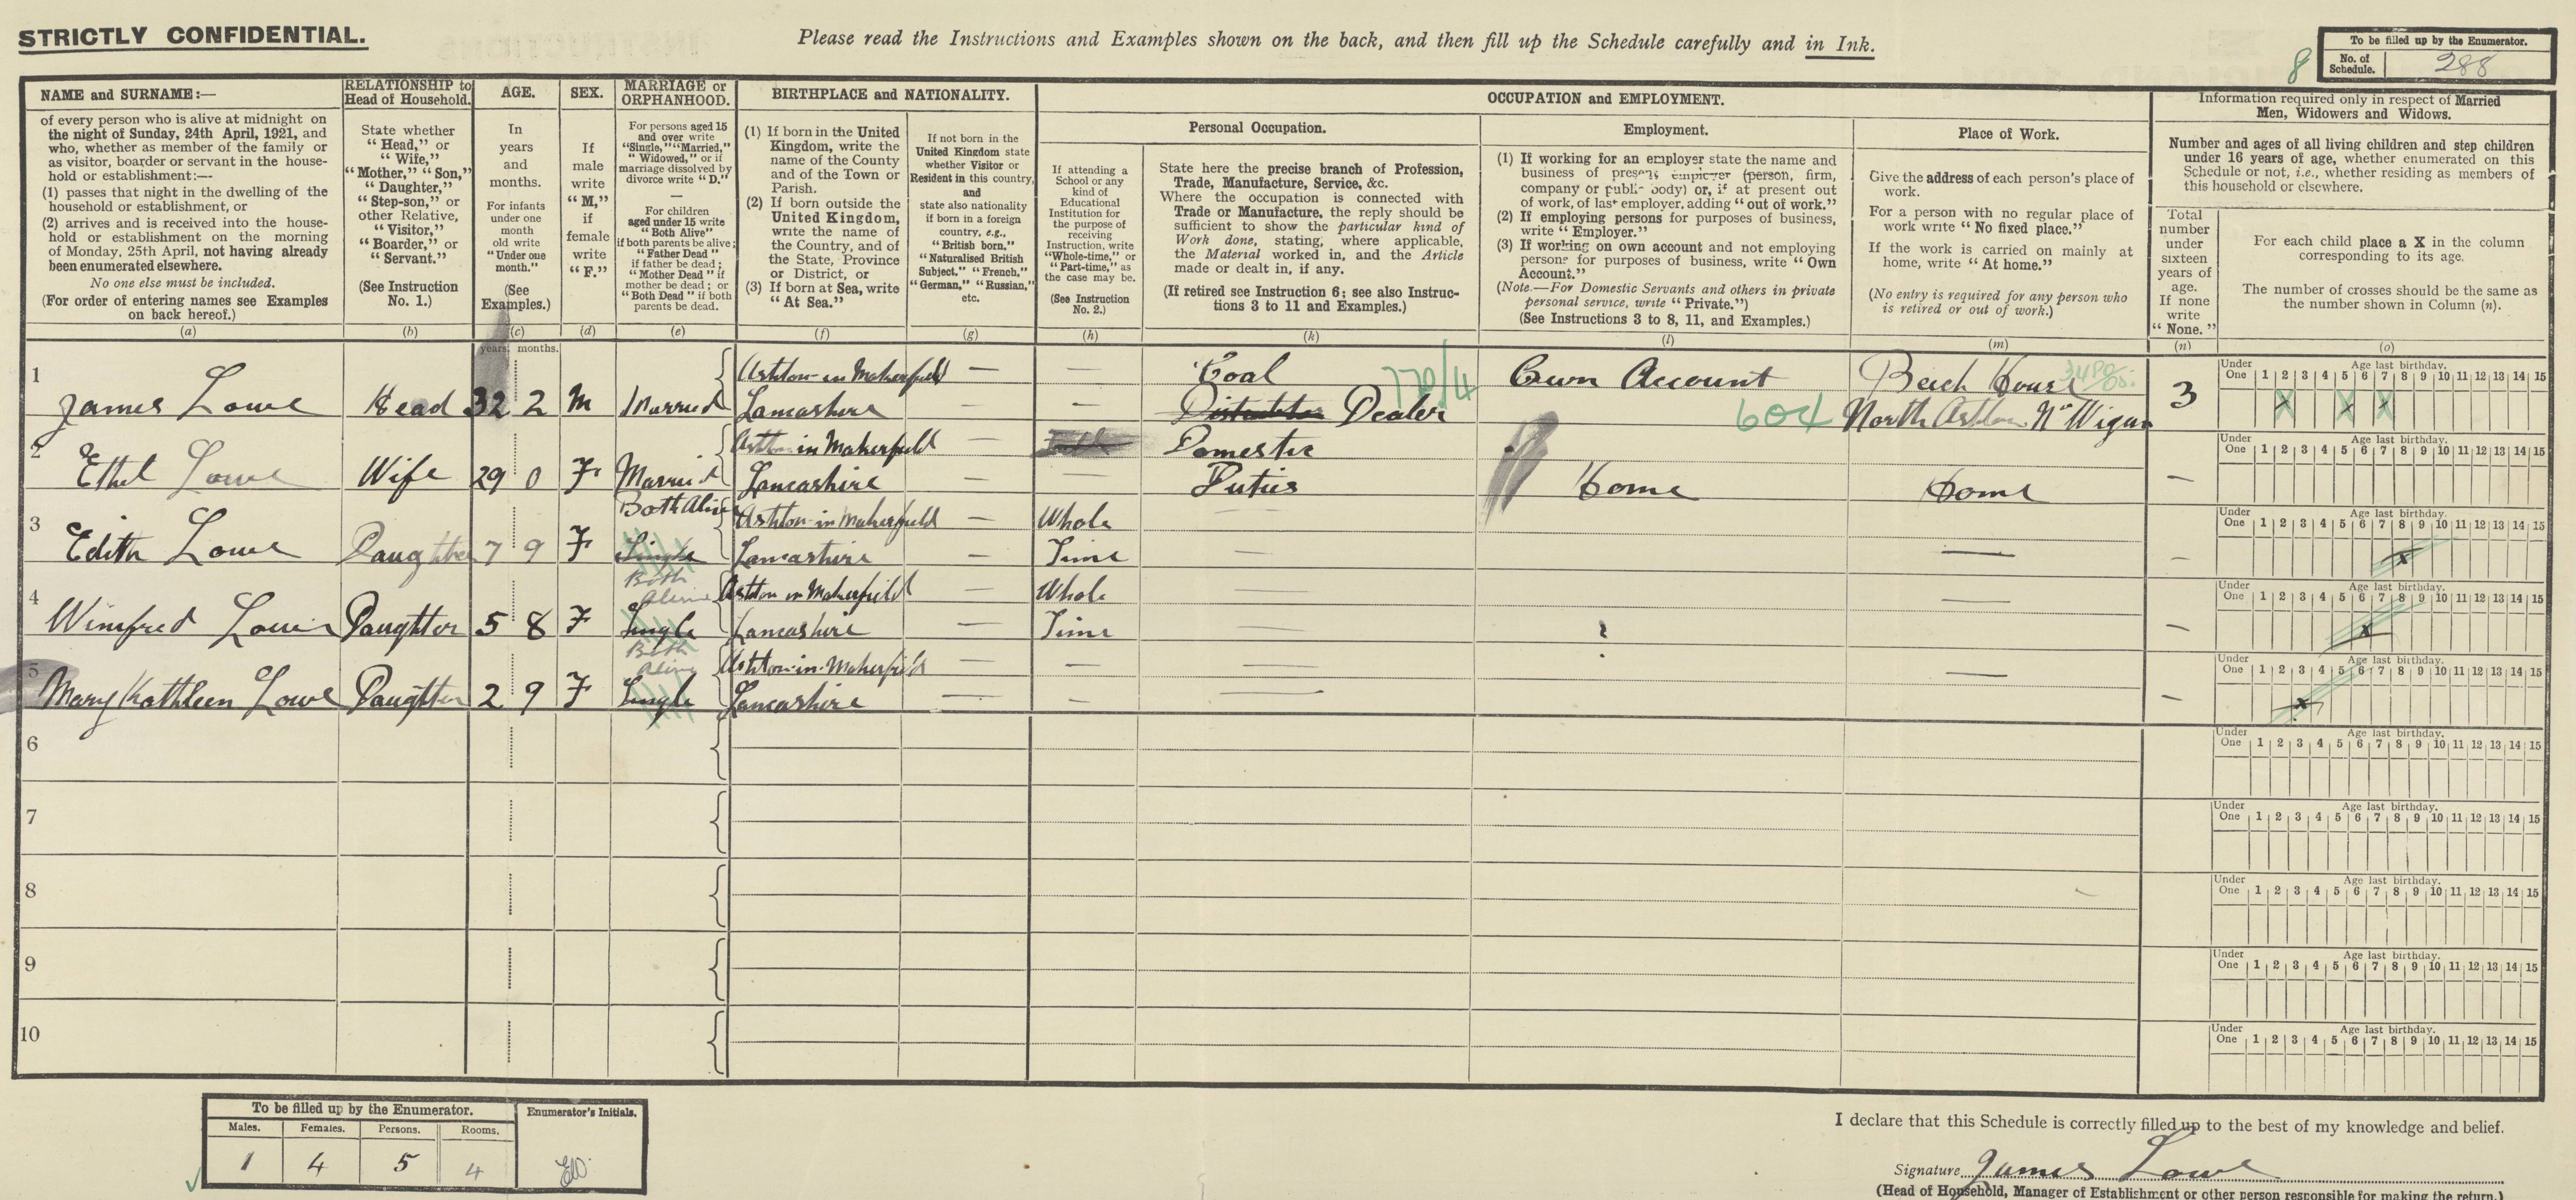 STRICTLY CONFIDENTIAL.
Please read the Instructions and Examples shown on the back, and then fill up the Schedule carefully and in Ink.
To be filled up by the Enumerator.
8
No. of Schedule. 288
NAME and SURNAME:—
of every person who is alive at midnight on
the night of Sunday, 24th April, 1921, and
who, whether as member of the family or
as visitor, boarder or servant in the house-
hold or establishment:—
(1) passes that night in the dwelling of the
household or establishment, or
(2) arrives and is received into the house-
hold or establishment on the morning
of Monday, 25th April, not having already
been enumerated elsewhere.
No one else must be included.
(For order of entering names see Examples
on back hereof.)
(a)
RELATIONSHIP to
Head of Household.
State whether
"Head," or
"Wife,"
"Mother," "Son,"
"Daughter,"
"Step-son," or
other Relative,
"Visitor,"
"Boarder," or
"Servant."
(See Instruction
No. 1.)
(b)
AGE.
In
years
and
months.
For infants
under one
month
old write
"Under one
month."
(See
Examples.)
(c)
SEX.
If
male
write
"M,"
if
female
write
"F."
(d)
MARRIAGE or
ORPHANHOOD.
For persons aged 15
and over write
"Single," "Married,"
"Widowed," or if
marriage dissolved by
divorce write "D."
—
For children
aged under 15 write
"Both Alive"
if both parents be alive;
"Father Dead"
if father be dead;
"Mother Dead" if
mother be dead; or
"Both Dead" if both
parents be dead.
(e)
BIRTHPLACE and NATIONALITY.
(1) If born in the United
Kingdom, write the
name of the County
and of the Town or
Parish.
(2) If born outside the
United Kingdom,
write the name of
the Country, and of
the State, Province
or District, or
(3) If born at Sea, write
"At Sea."
(f)
If not born in the
United Kingdom state
whether Visitor or
Resident in this country,
and
state also nationality
if born in a foreign
country, e.g.,
"British born,"
"Naturalised British
Subject," "French,"
"German," "Russian,"
etc.
(g)
OCCUPATION and EMPLOYMENT.
Personal Occupation.
If attending a
School or any
kind of
Educational
Institution for
the purpose of
receiving
Instruction, write
"Whole-time," or
"Part-time," as
the case may be.
(See Instruction
No. 2.)
(h)
State here the precise branch of Profession,
Trade, Manufacture, Service, &c.
Where the occupation is connected with
Trade or Manufacture, the reply should be
sufficient to show the particular kind of
Work done, stating, where applicable,
the Material worked in, and the Article
made or dealt in, if any.
(If retired see Instruction 6; see also Instruc-
tions 3 to 11 and Examples.)
(k)
Employment.
(1) If working for an employer state the name and
business of present employer (person, firm,
company or public body) or, if at present out
of work, of last employer, adding "out of work."
(2) If employing persons for purposes of business,
write "Employer."
(3) If working on own account and not employing
persons for purposes of business, write "Own
Account."
(Note.—For Domestic Servants and others in private
personal service, write "Private.")
(See Instructions 3 to 8, 11, and Examples.)
(l)
Place of Work.
Give the address of each person's place of
work.
For a person with no regular place of
work write "No fixed place."
If the work is carried on mainly at
home, write "At home."
(No entry is required for any person who
is retired or out of work.)
(m)
Information required only in respect of Married
Men, Widowers and Widows.
Number and ages of all living children and step children
under 16 years of age, whether enumerated on this
Schedule or not, i.e., whether residing as members of
this household or elsewhere.
Total
number
under
sixteen
years of
age.
If none
write
"None."
(n)
For each child place a X in the column
corresponding to its age.
The number of crosses should be the same as
the number shown in Column (n).
(o)
years. months.
Under One Age last birthday. 1 2 3 4 5 6 7 8 9 10 11 12 13 14 15
1 Ashton-in Makerfield — — Coal 770/4 Own Account Beech House
James Lowe Head 32 2 M Married Lancashire — Distributor Dealer 604 North Ashton Nr Wigan 3 X X X
Under One Age last birthday. 1 2 3 4 5 6 7 8 9 10 11 12 13 14 15
2 Ashton in Makerfield — Domestic
Ethel Lowe Wife 29 0 F Married Lancashire — — Duties Home Home —
Under One Age last birthday. 1 2 3 4 5 6 7 8 9 10 11 12 13 14 15
3 Both Alive Ashton-in Makerfield — Whole —
Edith Lowe Daughter 7 9 F Single Lancashire — Time — — — X
Under One Age last birthday. 1 2 3 4 5 6 7 8 9 10 11 12 13 14 15
4 Both Alive Ashton in Makerfield — Whole — —
Winifred Lowe Daughter 5 8 F Single Lancashire — Time — — X
Under One Age last birthday. 1 2 3 4 5 6 7 8 9 10 11 12 13 14 15
5 Both Alive Ashton-in-Makerfield — — — —
Mary Kathleen Lowe Daughter 2 9 F Single Lancashire — — — — X
6 Under One Age last birthday. 1 2 3 4 5 6 7 8 9 10 11 12 13 14 15
7 Under One Age last birthday. 1 2 3 4 5 6 7 8 9 10 11 12 13 14 15
8 Under One Age last birthday. 1 2 3 4 5 6 7 8 9 10 11 12 13 14 15
9 Under One Age last birthday. 1 2 3 4 5 6 7 8 9 10 11 12 13 14 15
10 Under One Age last birthday. 1 2 3 4 5 6 7 8 9 10 11 12 13 14 15
To be filled up by the Enumerator.
Enumerator's Initials.
Males. Females. Persons. Rooms.
1 4 5 4
I declare that this Schedule is correctly filled up to the best of my knowledge and belief.
Signature James Lowe
(Head of Household, Manager of Establishment or other person responsible for making the return.)